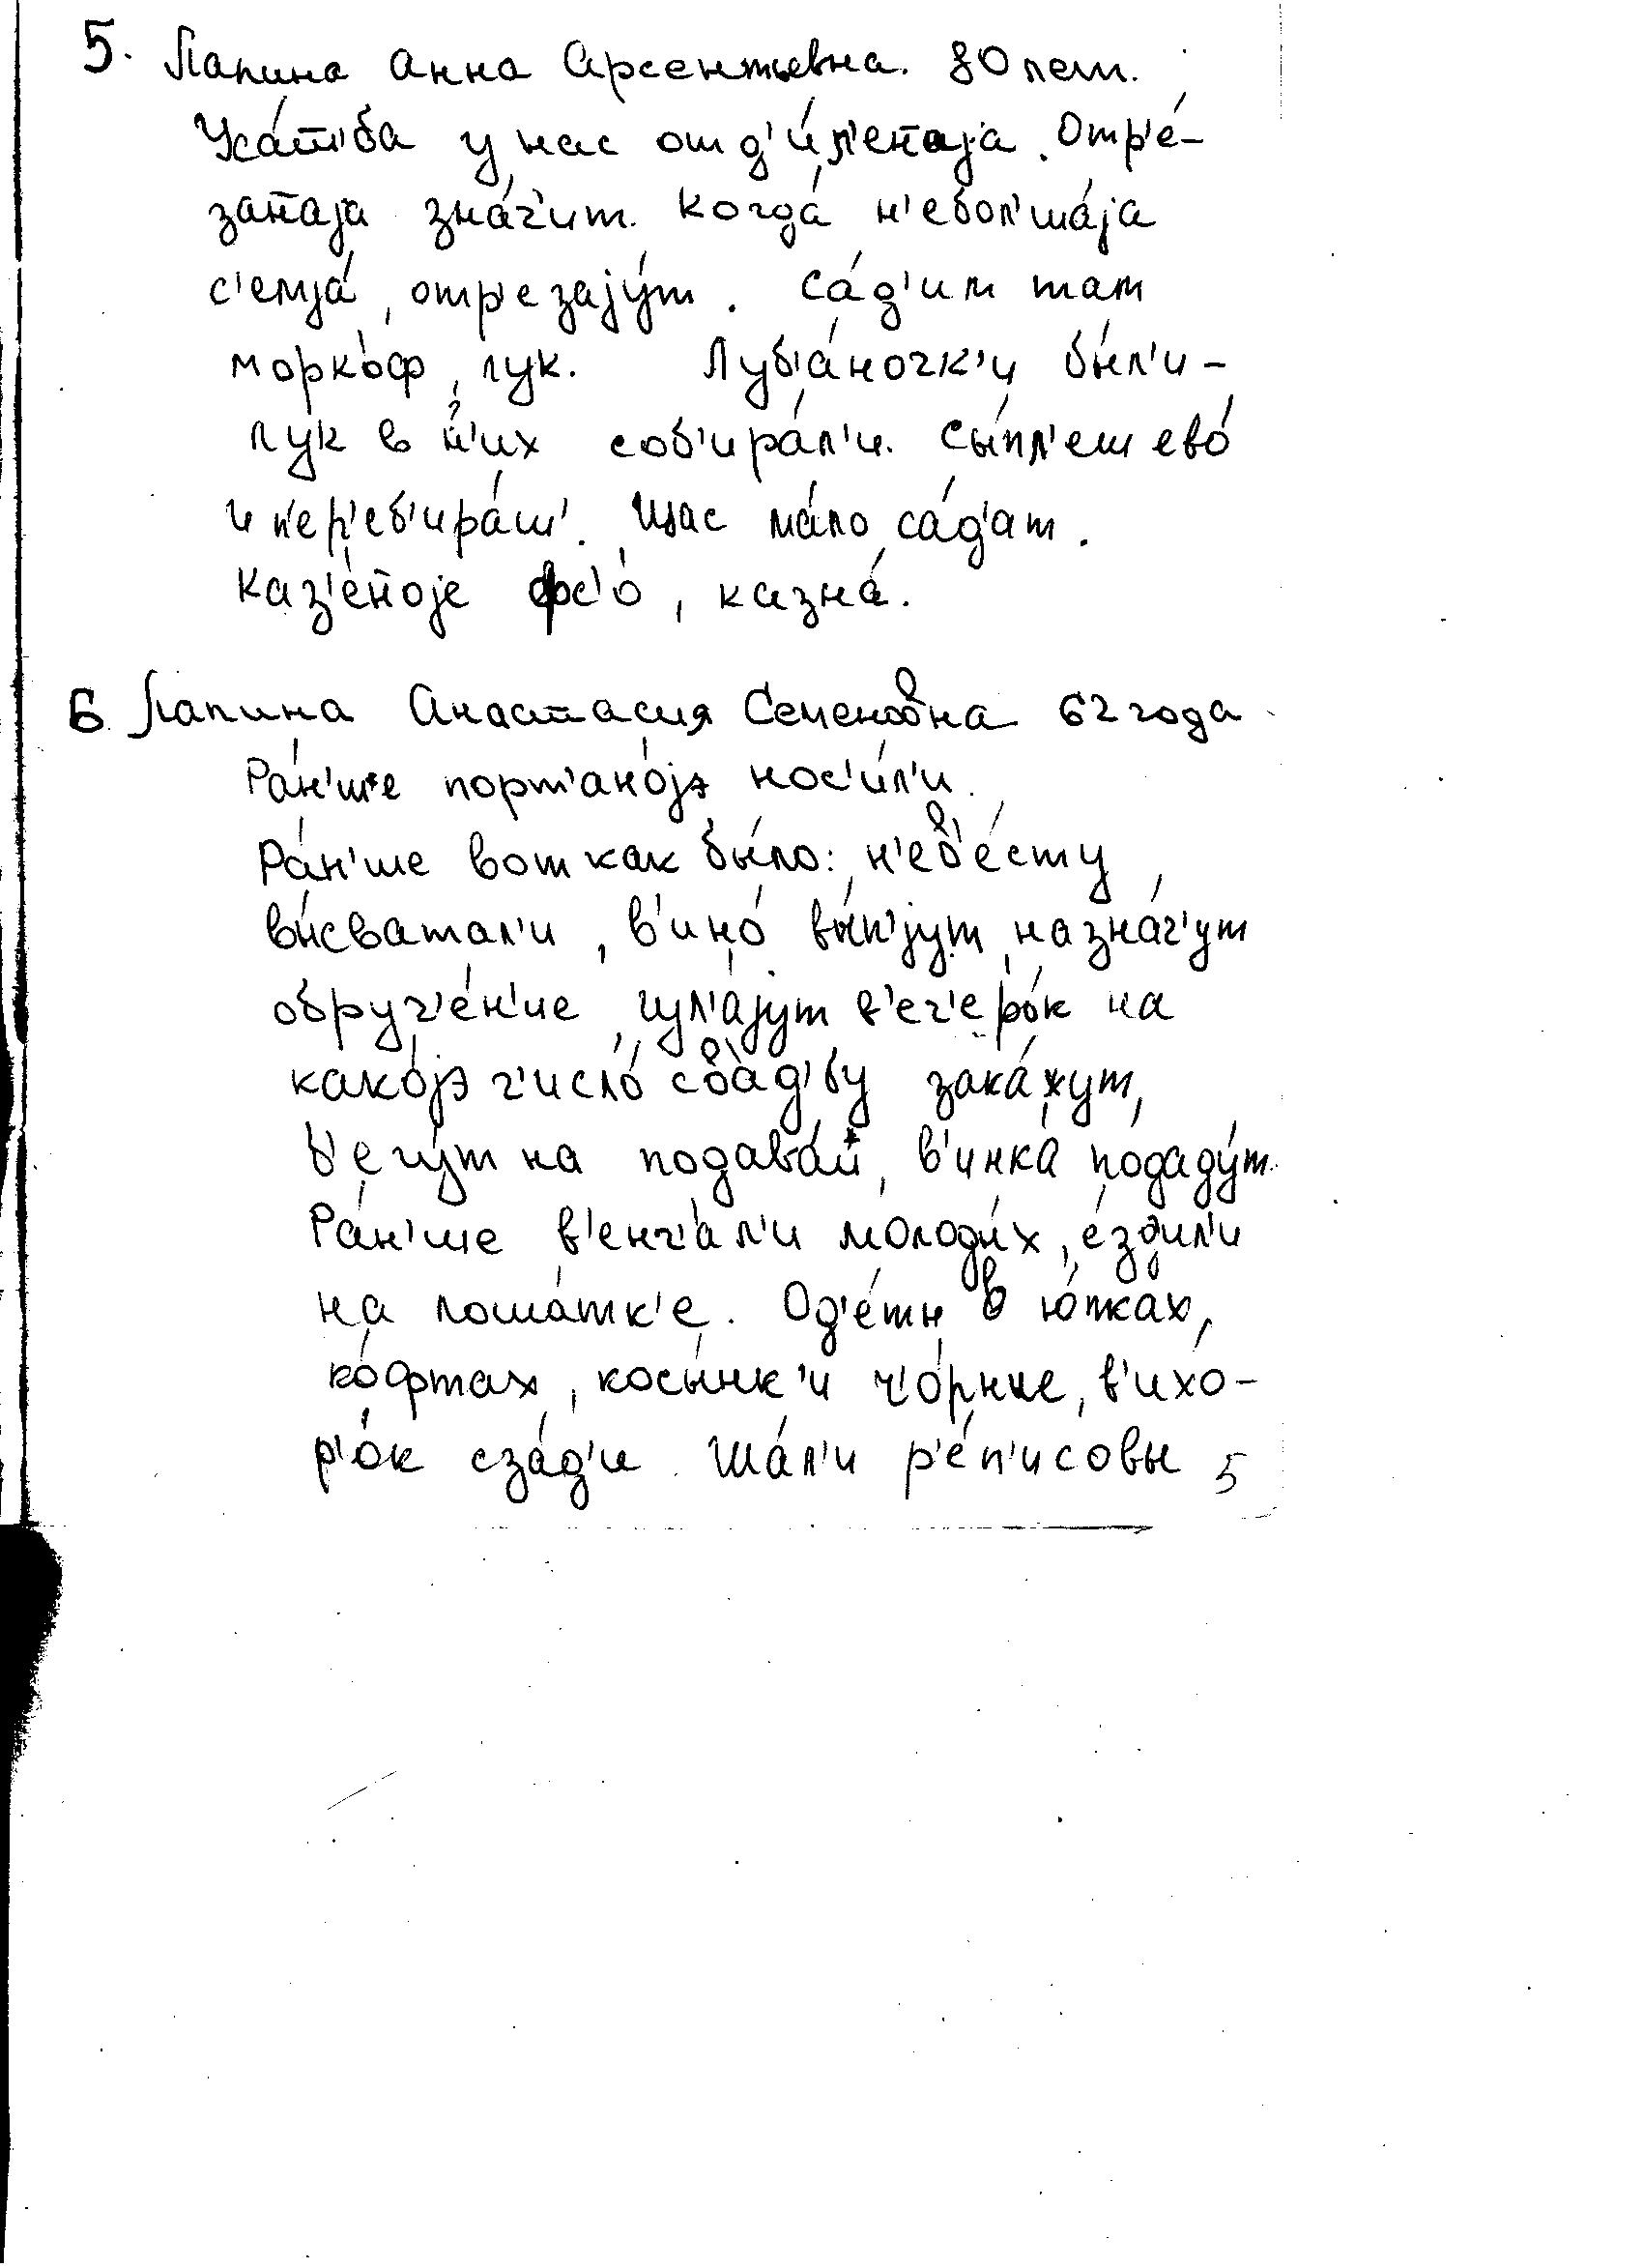 5. Лапина Анна Арсентьевна. 80 лет.
Уса́т'ба у нас отд'и́л'ен̄аја. Отр'е́-
зан̄аја зна́ч'ит. Когда́ н'ебол'ша́ја
с'емја́, отр'езају́т. Са́д'им там
морко́ф, лук. Луб'а́ночк'и бы́л'и -
лук в н'их соб'ира́л'и. Сы́пл'еш ево́
и п'ер'еб'ира́ш'. Щас ма́ло са́д'ат.
Каз'е́н̄оје фс'о́, казна́.
6. Лапина Анастасия Семеновна 62 года
Ра́н'ше порт'ано́јэ нос'и́л'и.
Ра́н'ше вот как бы́ло: н'ев'е́сту
вы́сватал'и, в'ино́ вы́п'јут, назна́ч'ут
обруч'е́н'ие, гул'а́јут в'еч'еро́к на
како́јэ ч'исло́ сва́д'бу зака́жут,
б'егу́т на подава́й, в'инка́ подаду́т.
Ра́н'ше в'енч'а́л'и молоды́х, е́здил'и
на лоша́тк'е. Од'е́ты в ю́пках,
ко́фтах, косы́нк'и ч'о́рные, в'ихо-
р'о́к сза́д'и. Ша́л'и р'е́п'исовы 5